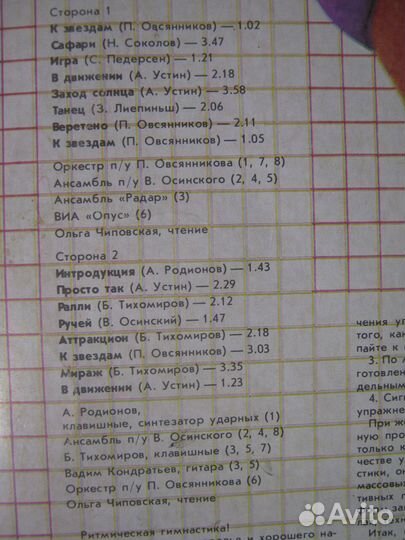 Сторона 1
К звездам (П. Овсянников) — 1.02
Сафари (Н. Соколов) — 3.47
Игра (С. Педерсен) — 1.21
В движении (А. Устин) — 2.18
Заход солнца (А. Устин) — 3.58
Танец (З. Лиепиньш) — 2.06
Веретено (П. Овсянников) — 2.11
К звездам (П. Овсянников) — 1.05
Оркестр п/у П. Овсянникова (1, 7, 8)
Ансамбль п/у В. Осинского (2, 4, 5)
Ансамбль «Радар» (3)
ВИА «Опус» (6)
Ольга Чиповская, чтение
Сторона 2
Интродукция (А. Родионов) — 1.43
Просто так (А. Устин) — 2.29
Ралли (Б. Тихомиров) — 2.12
Ручей (В. Осинский) — 1.47
Аттракцион (Б. Тихомиров) — 2.18
К звездам (П. Овсянников) — 3.03
Мираж (Б. Тихомиров) — 3.35
В движении (А. Устин) — 1.23
А. Родионов,
клавишные, синтезатор ударных (1)
Ансамбль п/у В. Осинского (2, 4, 8)
Б. Тихомиров, клавишные (3, 5, 7)
Вадим Кондратьев, гитара (3, 5)
Оркестр п/у П. Овсянникова (6)
Ольга Чиповская, чтение
Ритмическая гимнастика!
и хорошего на-
чения уп
того, как
пайте к
3. По
готовлен
дельным
4. Сиг
упражне
При же
ную про
только к
честве у
стики, он
массовых
тивных п
Итак,
Avito